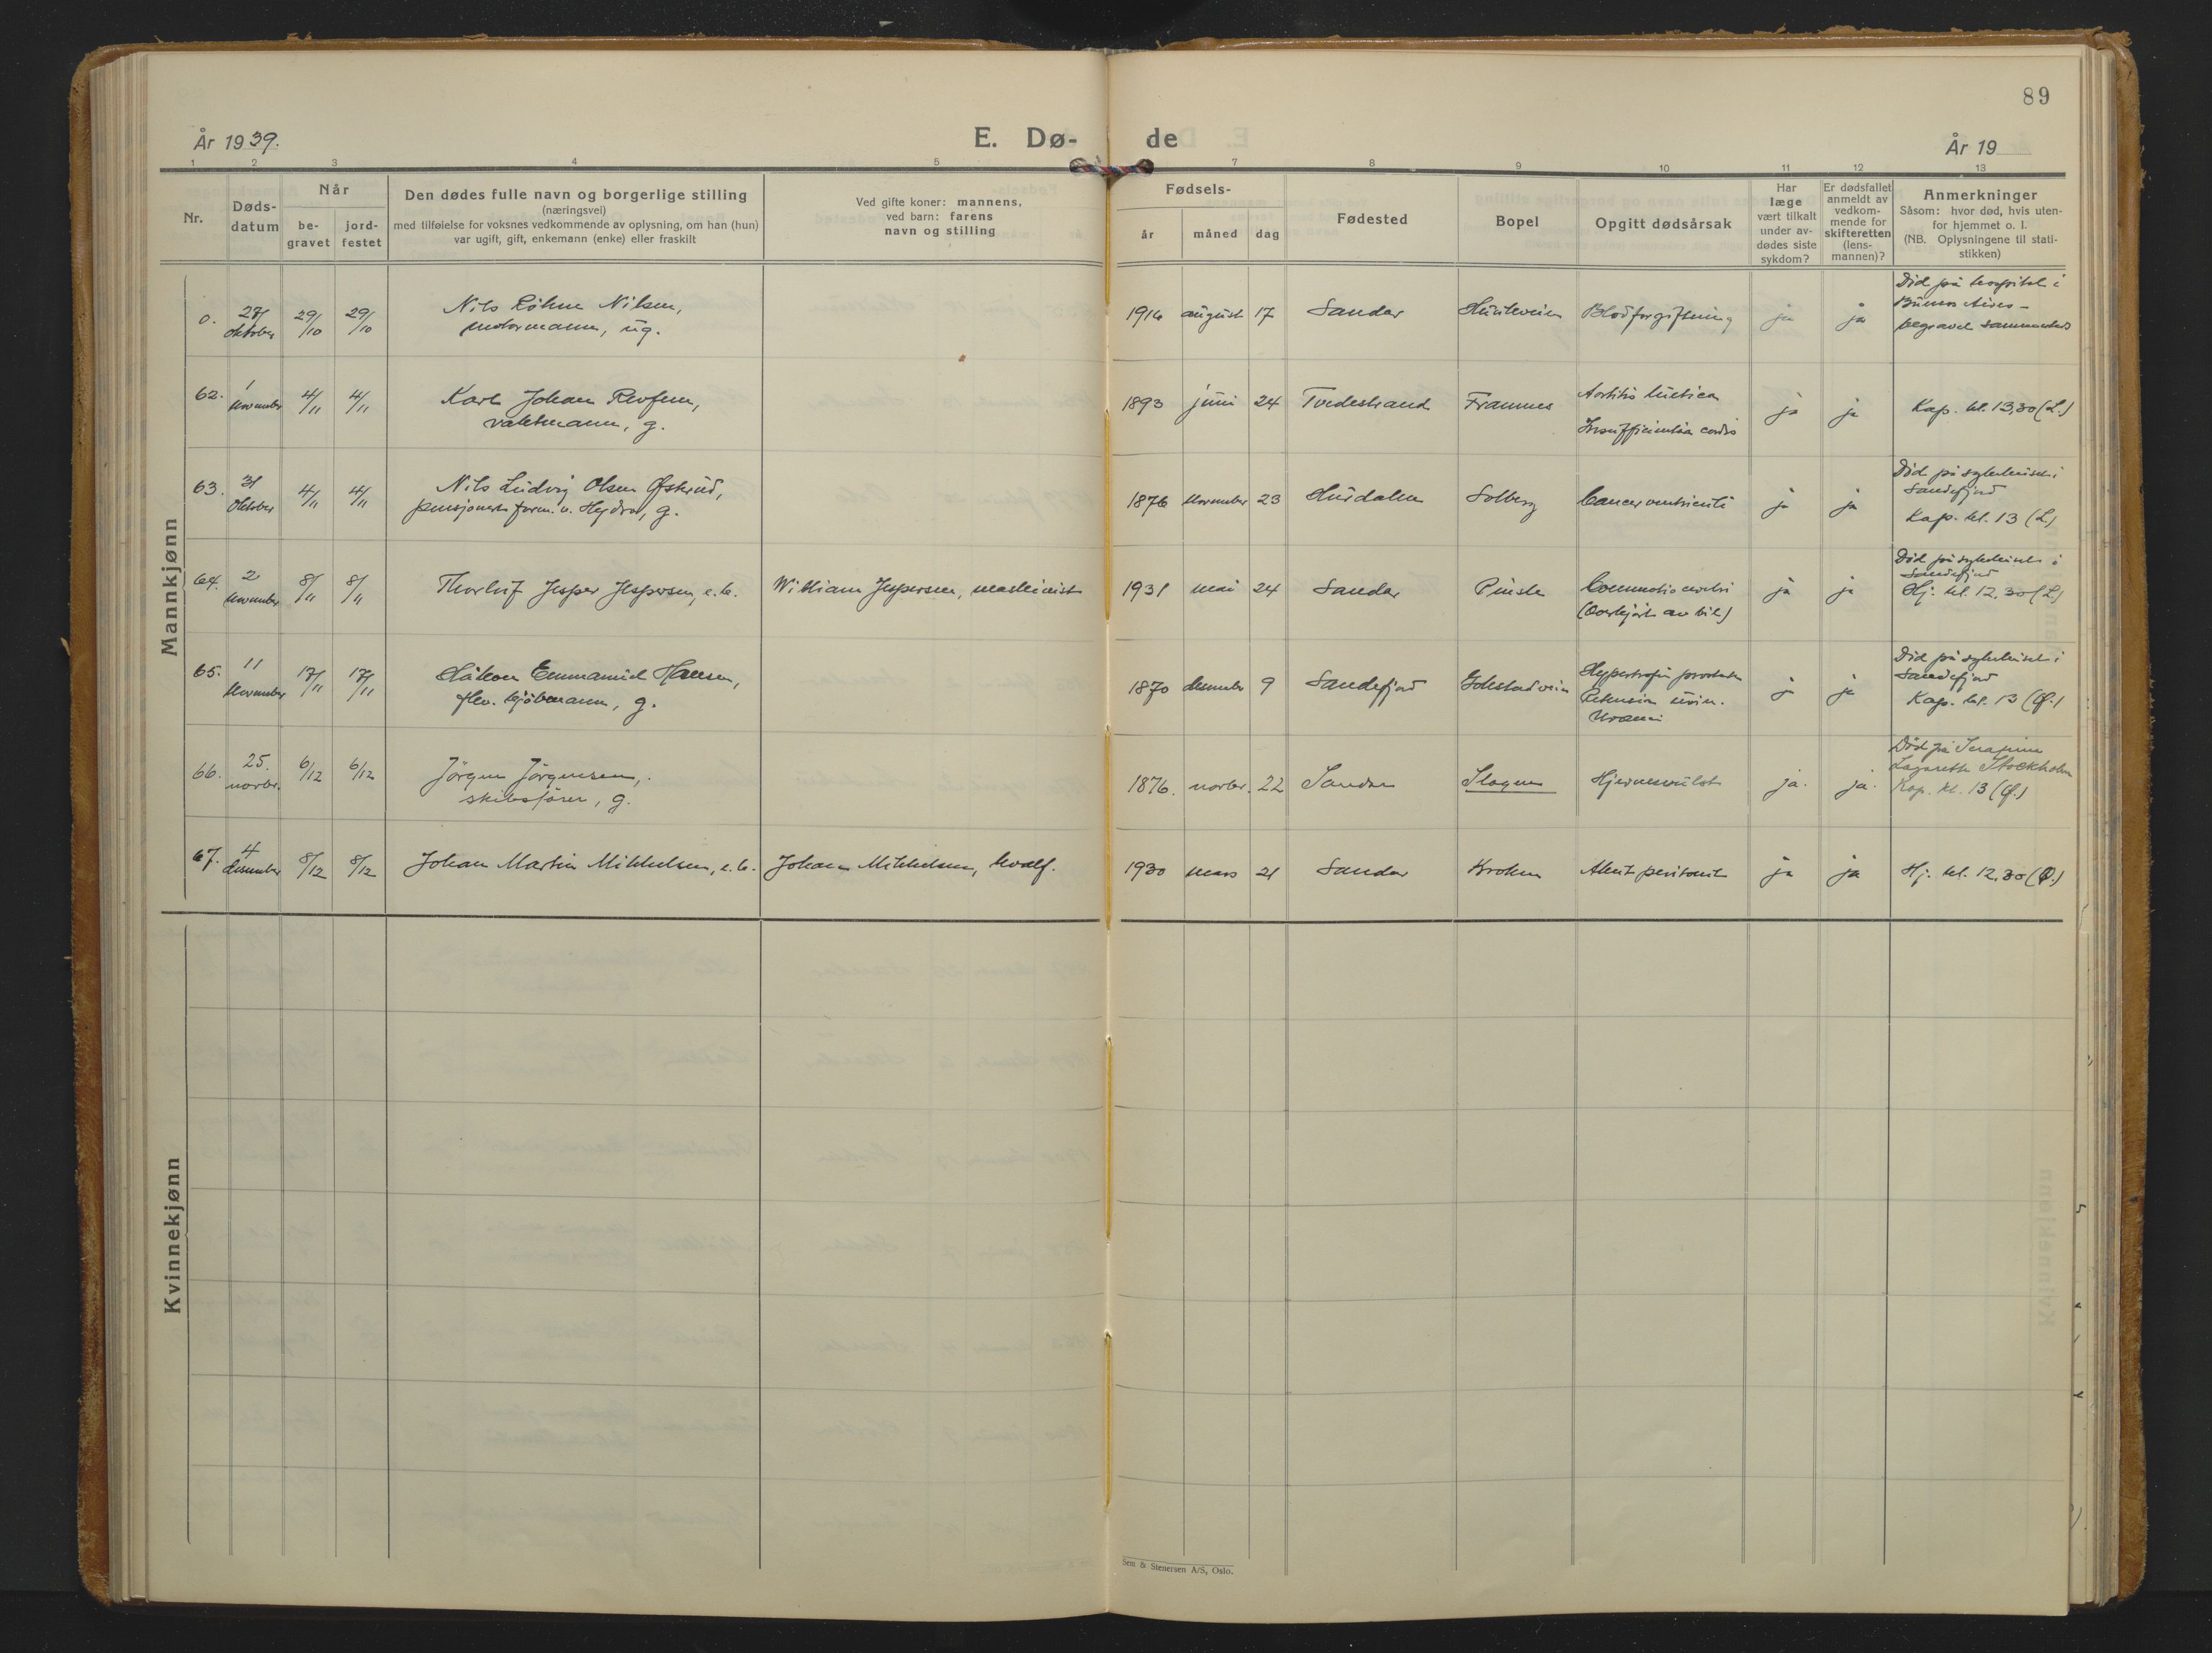 89
År 1939.
E. Dø- de
År 19
1 2 3 4 5 7 8 9 10 11 12 13
Nr.
Døds-
datum
Når
be-
gravet
jord-
festet
Den dødes fulle navn og borgerlige stilling
(næringsvei)
med tilføielse for voksnes vedkommende av oplysning, om han (hun)
var ugift, gift, enkemann (enke) eller fraskilt
Ved gifte koner: mannens,
ved barn: farens
navn og stilling
Fødsels-
år måned dag
Fødested
Bopel
Opgitt dødsårsak
Har
læge
vært tilkalt
under av-
dødes siste
sykdom?
Er dødsfallet
anmeldt av
vedkom-
mende for
skifteretten
(lens-
mannen)?
Anmerkninger
Såsom: hvor død, hvis uten-
for hjemmet o. l.
(NB. Oplysningene til stati-
stikken)
Mannkjønn
0. 27/ oktober 29/10 29/10
Nils Nilsen,
motormann, ug.
1916 august 17 Sandar Blodforgiftning ja ja
Død på hospital i
Buenos Aires -
begravet sammesteds
62. 1 november 4/11 4/11
Karl Johan
vaktmann, g.
1893 juni 24 Tvedestrand Framnes
Aortitis luetica
Insufficientia cordis
ja ja Kap. kl. 13,30 (L.)
63. 31 oktober 4/11 4/11
Nils Ludvig Olsen Øskrud,
pensjonert form. v. Hydro, g.
1876 november 23 Hurdalen Solberg Cancer ventriculi ja ja
Død på sykehuset i
Sandefjord
Kap. kl. 13 (L)
64. 2 november 8/11 8/11
Thorleif Jesper Jespersen, e. b. William Jespersen, maskinist
1931 mai 24 Sandar Pindsle
Commotio cerebri
(Overkjørt av bil)
ja ja
Død på sykehuset i
Sandefjord
Hj. kl. 12.30 (L)
65. 11 november 17/11 17/11
Håkon Emmanuel Hansen,
g.
1870 desember 9 Sandefjord Gokstadveien
Hypertrofia prostata
Retension urin.
Uræmi
ja ja
Død på sykehuset i
Sandefjord
Kap. kl. 13 (Ø.)
66. 25. novbr. 6/12 6/12
Jörgen Jörgensen,
skibsfører, g.
1876. novbr. 22 Sandar Slagen Hjernesvulst ja. ja.
Død på Serafimer
Lazarett Stockholm
Kap. kl. 13 (Ø.)
67. 4 desember 8/12 8/12
Johan Martin Mikkelsen, e. b. Johan Mikkelsen, hvalf.
1930 mars 21 Sandar Kroken Akut peritonit ja ja Hj. kl. 12.30 (Ø.)
Kvinnekjønn
Sem & Stenersen A/S, Oslo.